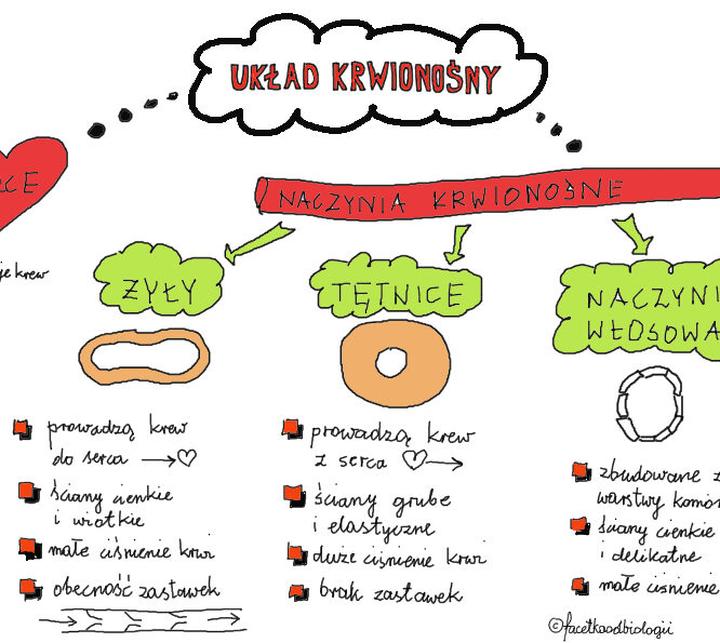 UKŁAD KRWIONOŚNY
NACZYNIA KRWIONOŚNE
krew
ŻYŁY
prowadzą krew
do serca
ściany cienkie
i wiotkie
małe ciśnienie krwi
obecność zastawek
TĘTNICE
prowadzą krew
z serca
ściany grube
i elastyczne
duże ciśnienie krwi
brak zastawek
NACZYNI
WŁOSOWA
zbudowane z
warstwy komór
ściany cienkie
i delikatne
małe ciśnienie
©facetkaodbiologii